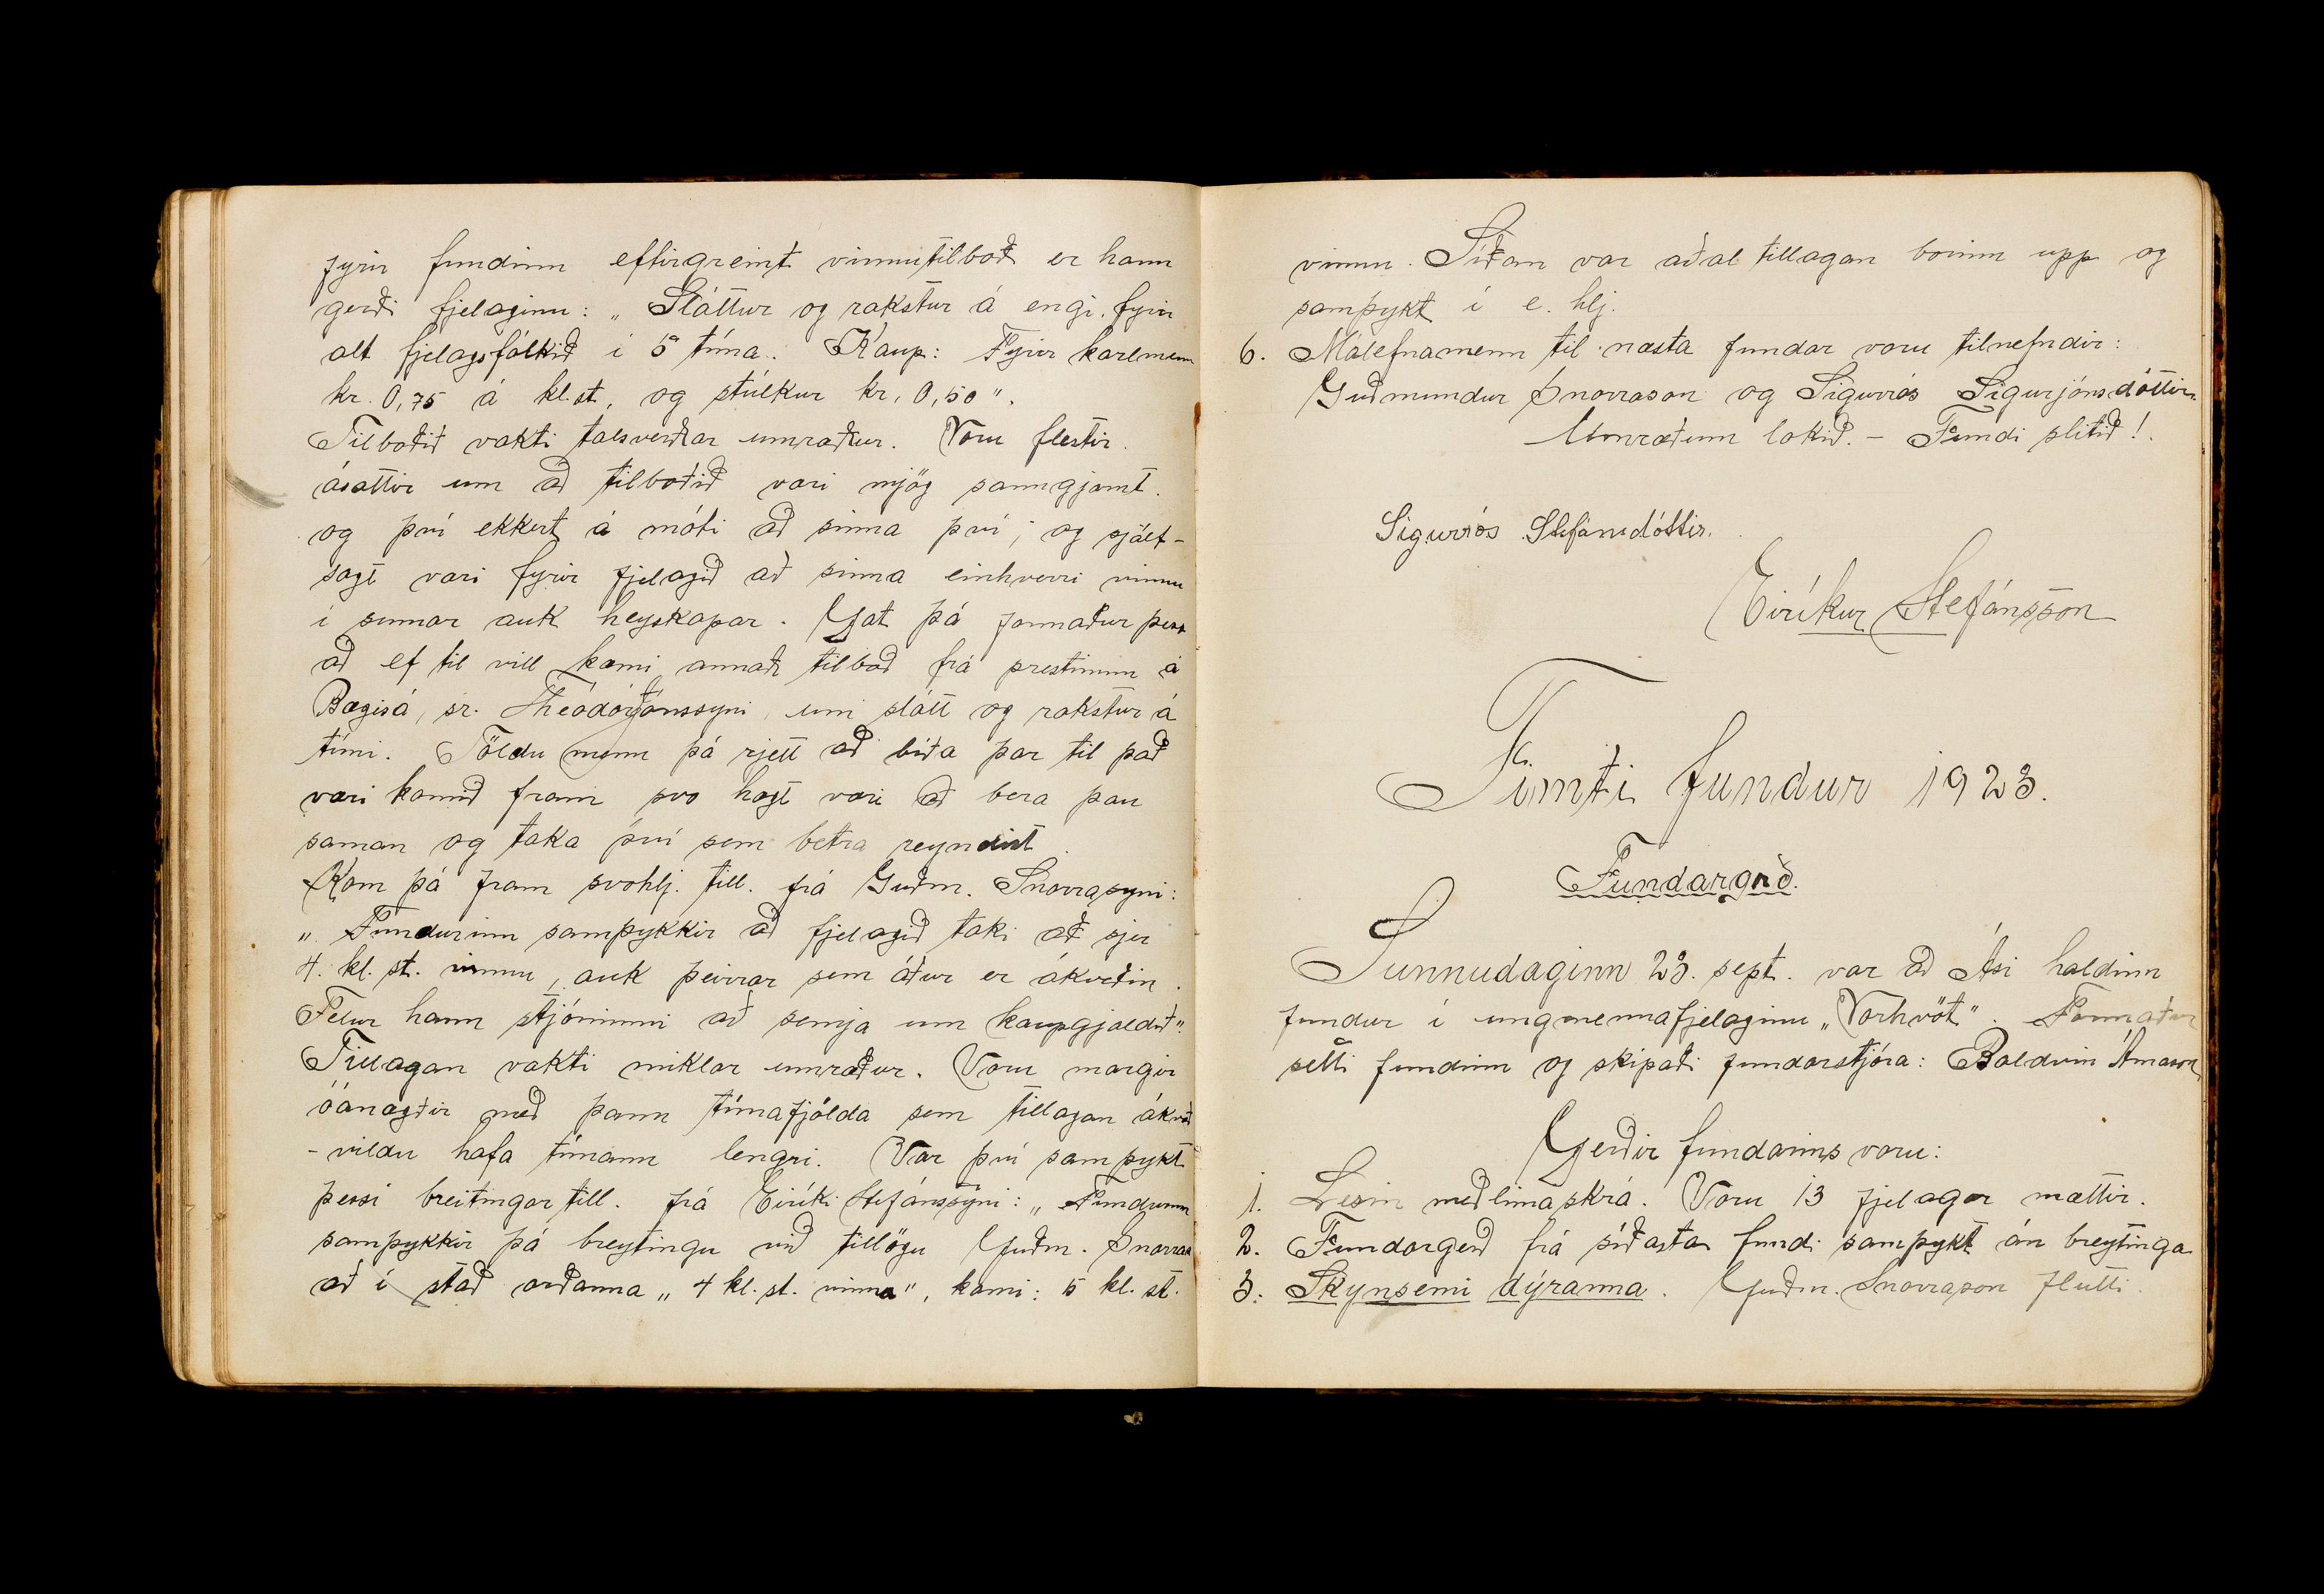 fyrir fundinn eftirgreint vinnutilboð er hann
gerði fjelaginu: „Sláttur og rakstur á engi, fyrir
alt fjelagsfólkið í 5 tíma. Kaup: Fyrir karlmenn
kr. 0,75 á kl.st, og stúlkur kr, 0,50".
Tilboðið vakti talsverðar umræður. Voru flestir
ásáttir um að tilboðið væri mjög sanngjarnt.
og því ekkert á móti að sinna því; og sjálf-
sagt væri fyrir fjelagið að sinna einhverri vinnu
í sumar auk heyskapar. Gat þá formaður þess
að ef til vill kæmi annað tilboð frá prestinum á
Bægisá, sr. Theódór Jónssyni, um slátt og rakstur á
túni. Töldu menn þá rjett að bíða þar til það
væri komið fram svo hægt væri að bera þau
saman og taka því sem betra reyndist.
Kom þá fram svohlj. till. frá Guðm. Snorrasyni:
„Fundurinn samþykkir að fjelagið taki að sjer
4. kl. st. vinnu, auk þeirrar sem áður er ákveðin.
Felur hann stjórninni að semja um kaupgjaldið".
Tillagan vakti miklar umræður. Voru margir
óánægðir með þann tímafjölda sem tillagan ákvað
- vildu hafa tímann lengri. Var því samþykt
þessi breitingartill. frá Eiríki Stefánssyni: „Fundurinn
samþykkir þá breytingu við tillögu Guðm. Snorras
að í stað orðanna „4 kl. st. vinna", komi: 5 kl. st.
vinnu. Síðan var aðal tillagan borinn upp og
samþykt í e. hlj.
6. Málefnamenn til næsta fundar voru tilnefndir:
Guðmundur Snorrason og Sigurrós Sigurjónsdóttir.
Umræðum lokið. - Fundi slitið!.
Sigurrós Stefánsdóttir.
Eiríkur Stefánsson
Fimti fundur 1923.
Fundargerð.
Sunnudaginn 23. sept. var að Ási haldinn
fundur í ungmennafjelaginu „Vorhvöt". Formaður
setti fundinn og skipaði fundarstjóra: Baldvin Árnason
Gerðir fundarins voru:
1. Lesin meðlimaskrá. Voru 13 fjelagar mættir.
2. Fundargerð frá síðasta fundi samþykt án breytinga
3. Skynsemi dýranna. Guðm. Snorrason flutti.